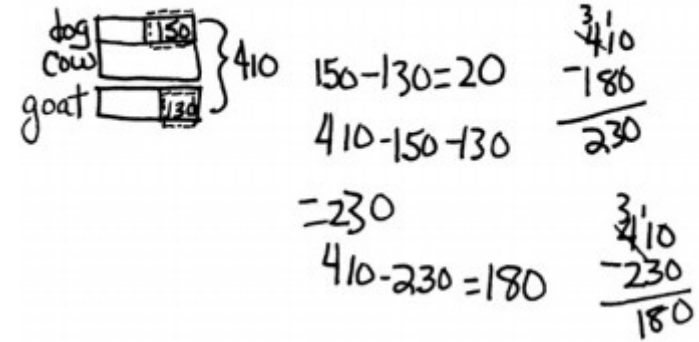 dog 150
cow
goat 130
410
150-130=20
410-150-130
=230
410-230=180
3 1
410
-180
230
3 1
410
-230
180